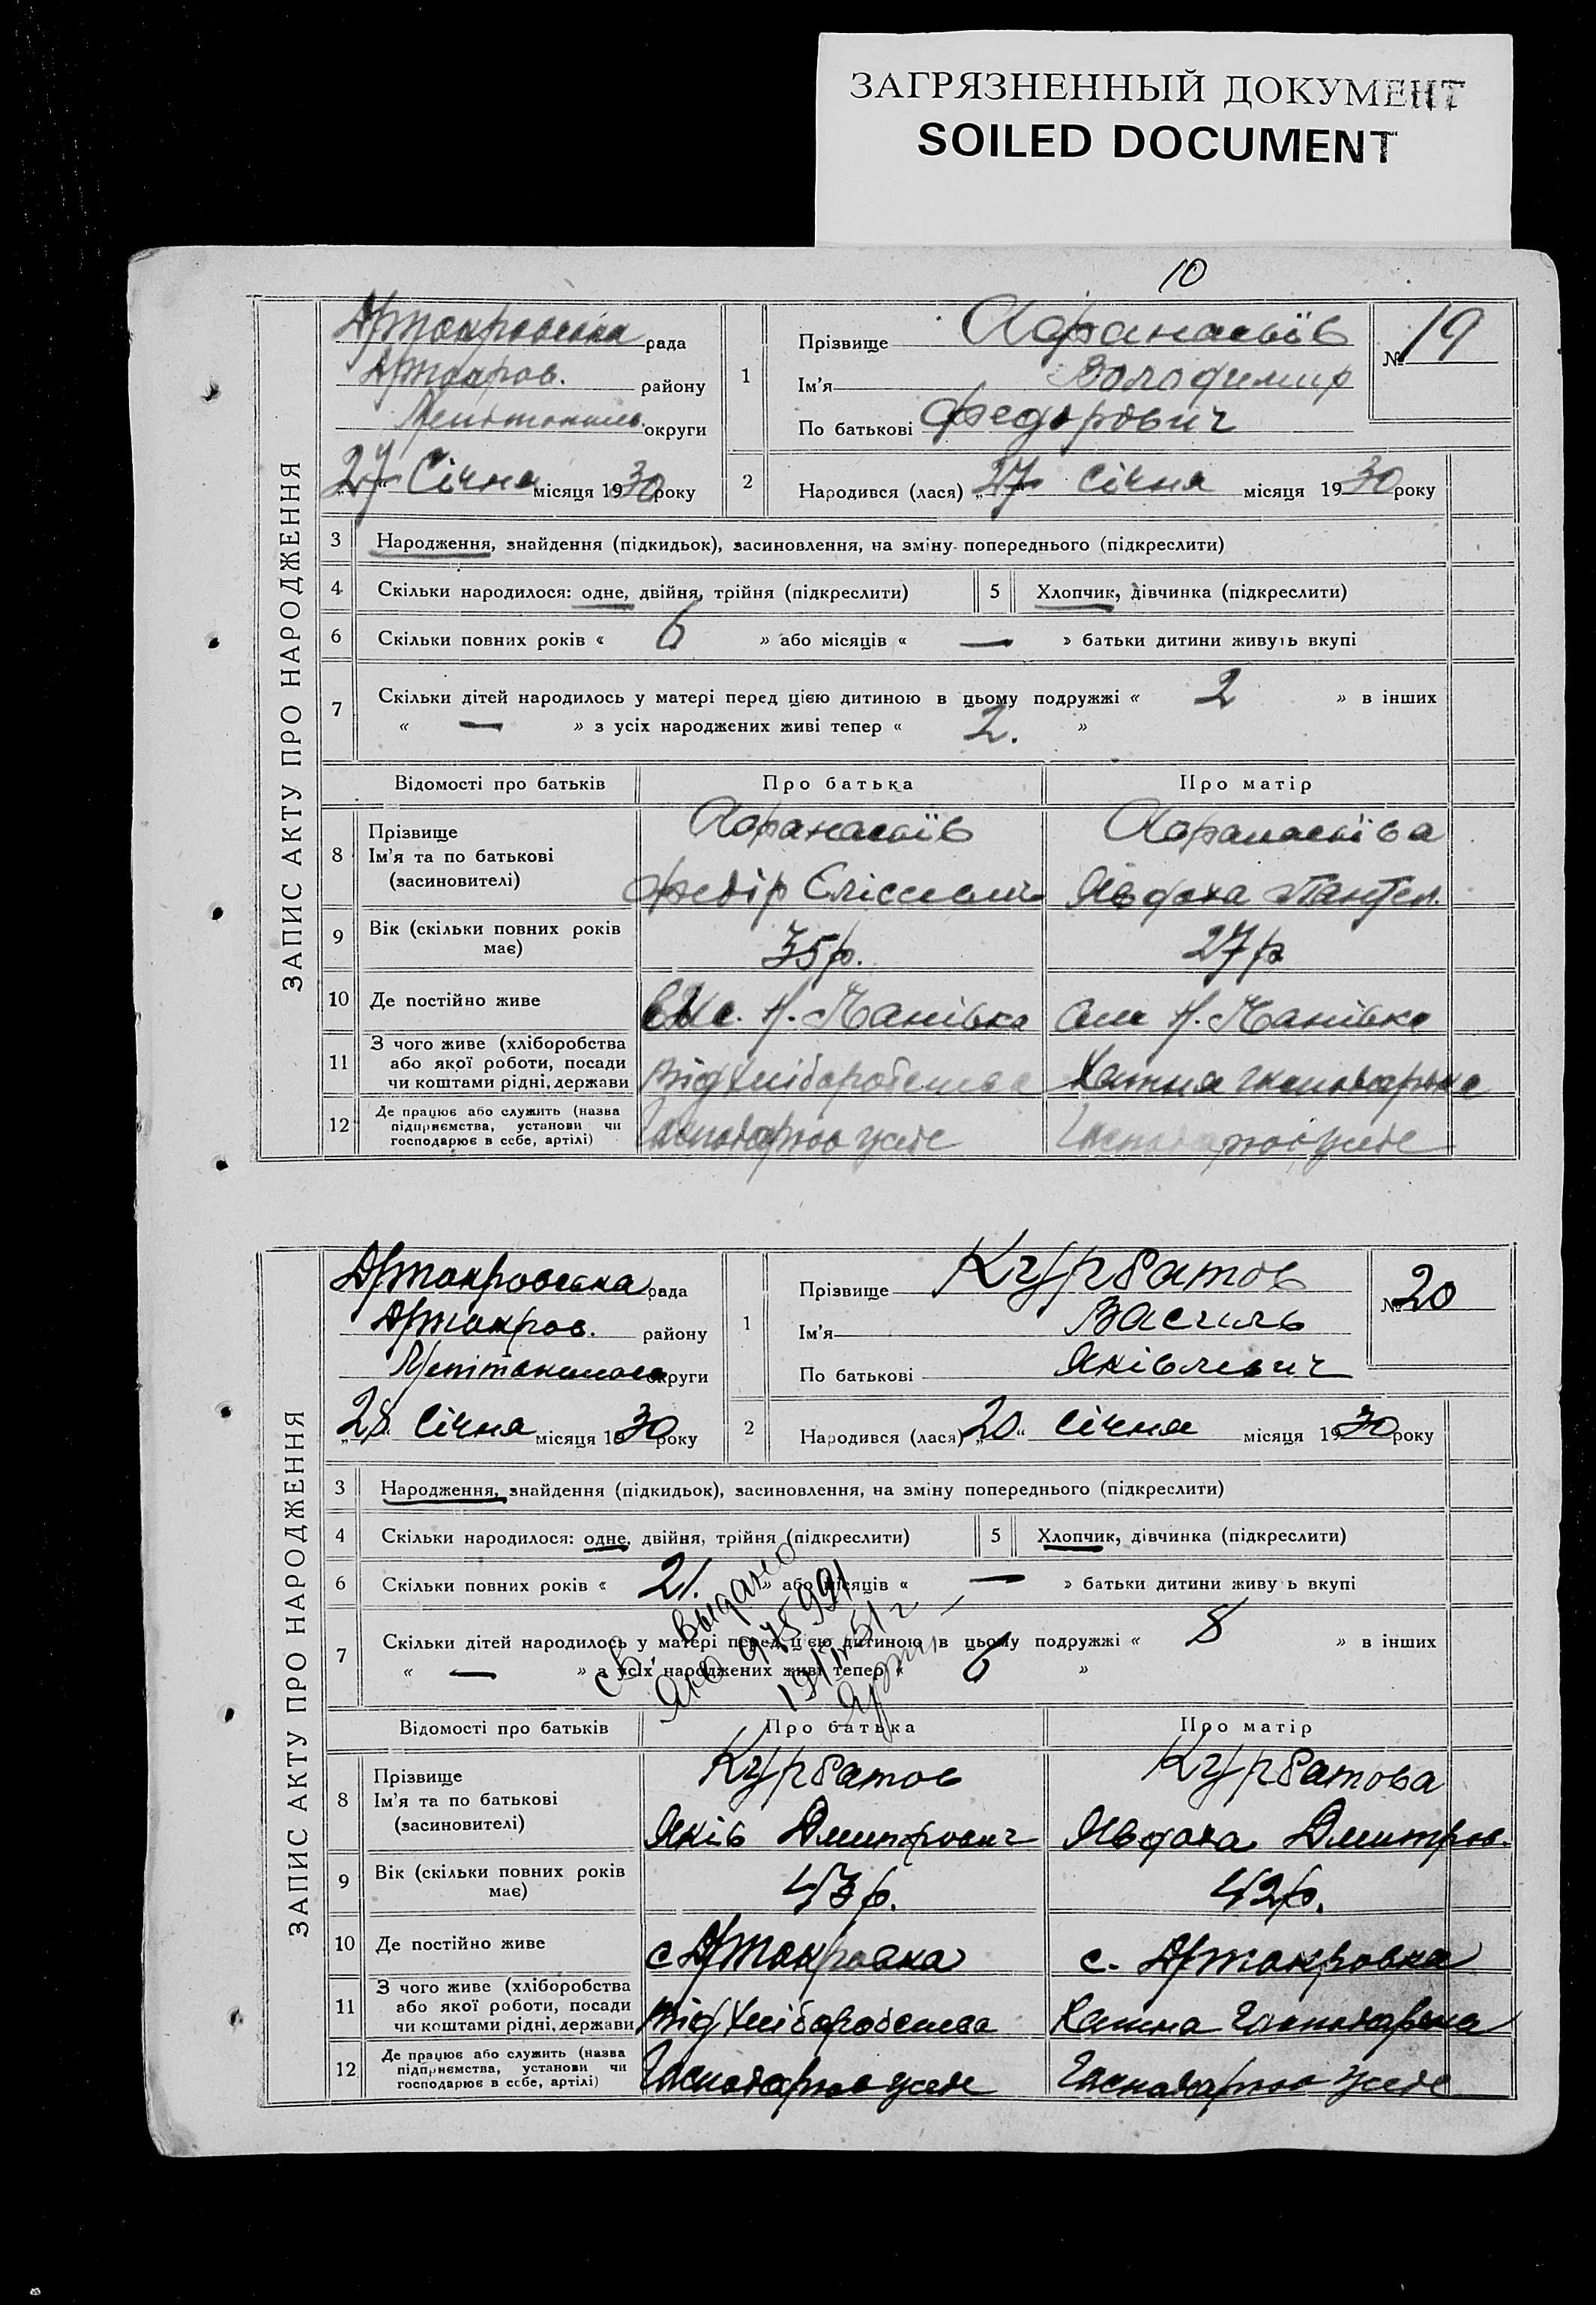 ЗАГРЯЗНЕННЫЙ ДОКУМЕНТ
SOILED DOCUMENT
10
ЗАПИС АКТУ ПРО НАРОДЖЕННЯ
рада
району
округи
27 Січня місяця 1930 року
1
Прізвище Афанасьїв
Ім'я Володимир
По батькові Федорович
№ 19
2 Народився (лася) „27“ Січня місяця 1930 року
3 Народження, знайдення (підкидьок), засиновлення, на зміну попереднього (підкреслити)
4 Скільки народилося: одне, двійня, трійня (підкреслити) 5 Хлопчик, дівчинка (підкреслити)
6 Скільки повних років « 6 » або місяців « — » батьки дитини живуть вкупі
7 Скільки дітей народилось у матері перед цією дитиною в цьому подружжі « 2 » в інших
« — » з усіх народжених живі тепер « 2. »
Відомості про батьків Про батька Про матір
8 Прізвище
Ім'я та по батькові
(засновителі)
Афанасьїв
Федір
Афанасьїва
Явдоха Пантел.
9 Вік (скільки повних років має) 35р. 27р
10 Де постійно живе Н. Манівка Н. Манівка
11 З чого живе (хліборобства
або якої роботи, посади
чи коштами рідні, держави
Від хліборобства Хатня господарка
12 Де працює або служить (назва
підприємства, установи чи
господарює в себе, артілі)
Господарює у себе Господарює у себе
ЗАПИС АКТУ ПРО НАРОДЖЕННЯ
рада
району
округи
28 Січня місяця 1930 року
1
Прізвище Курбатов
Ім'я Василь
По батькові Яківлевич
№ 20
2 Народився (лася) „20“ Січня місяця 1930 року
3 Народження, знайдення (підкидьок), засиновлення, на зміну попереднього (підкреслити)
4 Скільки народилося: одне, двійня, трійня (підкреслити) 5 Хлопчик, дівчинка (підкреслити)
6 Скільки повних років « 21. » або місяців « — » батьки дитини живуть вкупі
7 Скільки дітей народилось у матері перед цією дитиною в цьому подружжі « 8 » в інших
« — » з усіх народжених живі тепер « 6 »
св. выдано
975991
Відомості про батьків Про батька Про матір
8 Прізвище
Ім'я та по батькові
(засиновителі)
Курбатов
Яків Дмитрович
Курбатова
Явдоха Дмитров.
9 Вік (скільки повних років має) 43р. 42р.
10 Де постійно живе
11 З чого живе (хліборобства
або якої роботи, посади
чи коштами рідні, держави
Від хліборобства Хатня господарка
12 Де працює або служить (назва
підприємства, установи чи
господарює в себе, артілі)
Господарює у себе Господарює у себе